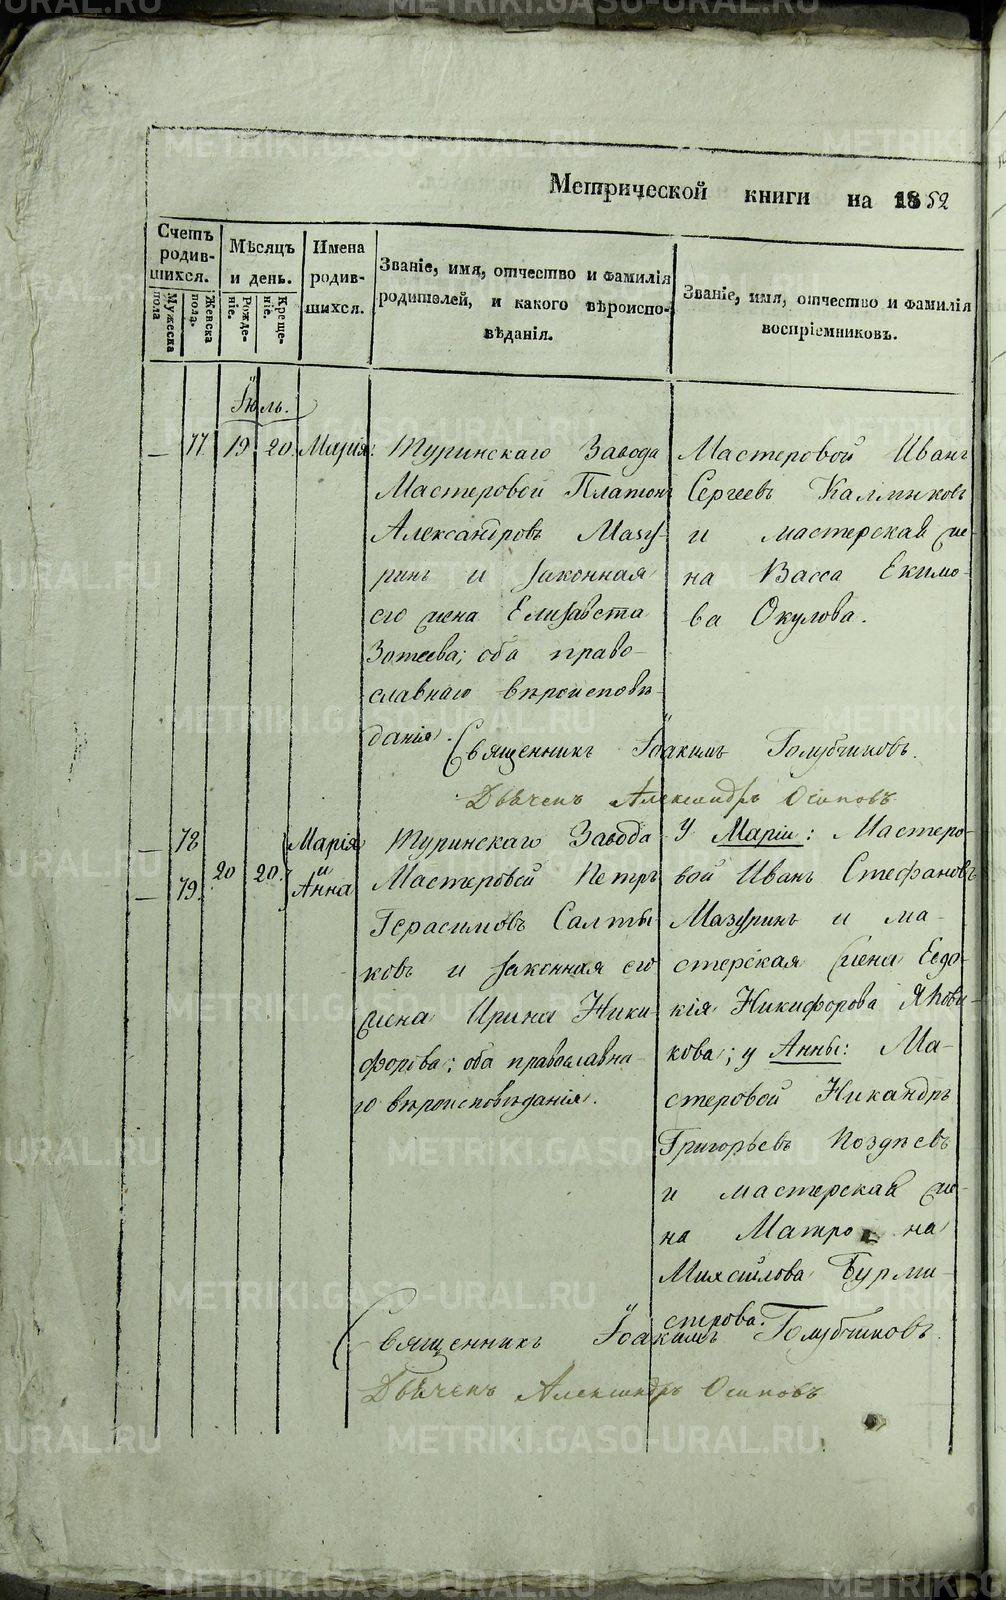 METRIKI.GASO-URAL.RU
Метрической книги на 1852
Счетъ родив-шихся.
Мужеска пола
Женска пола.
Мѣсяцъ и день.
Рожде-ніе.
Креще-ніе.
Имена родив-шихся.
Званіе, имя, отчество и фамилія
родителей, и какого вѣроиспо-
вѣданія.
Званіе, имя, отчество и фамилія
воспріемниковъ.
Іюль.
— 77 19 20 Марія.
Туринскаго Завода
Мастеровой Платонъ
Александровъ Мазу-
ринъ и законная
его жена Елизавета
Зотеева; оба право-
славнаго вѣроисповѣ-
данія.
Мастеровой Иванъ
Сергеевъ Калмыковъ
и мастерская же-
на Васса Екимо-
ва Окулова.
Священникъ Іоакимъ Голубчиковъ.
Дьячекъ Александръ Осиповъ
— 78
— 79.
20 20.
Марія
и
Анна
Туринскаго Завода
Мастеровой Петръ
Герасимовъ Салты
ковъ и законная его
жена Ирина Ники
форова; оба православна-
го вѣроисповѣданія.
У Маріи: Мастеро-
вой Иванъ Стефановъ
Мазуринъ и ма-
стерская жена Евдо-
кія Никифорова Якови-
кова; у Анны: Ма-
стеровой Никандръ
Григорьевъ Поздѣевъ
и мастерская же-
на Матрона
Михайлова Бурми-
строва.
Священникъ Іоакимъ Голубчиковъ.
Дьячекъ Александръ Осиповъ